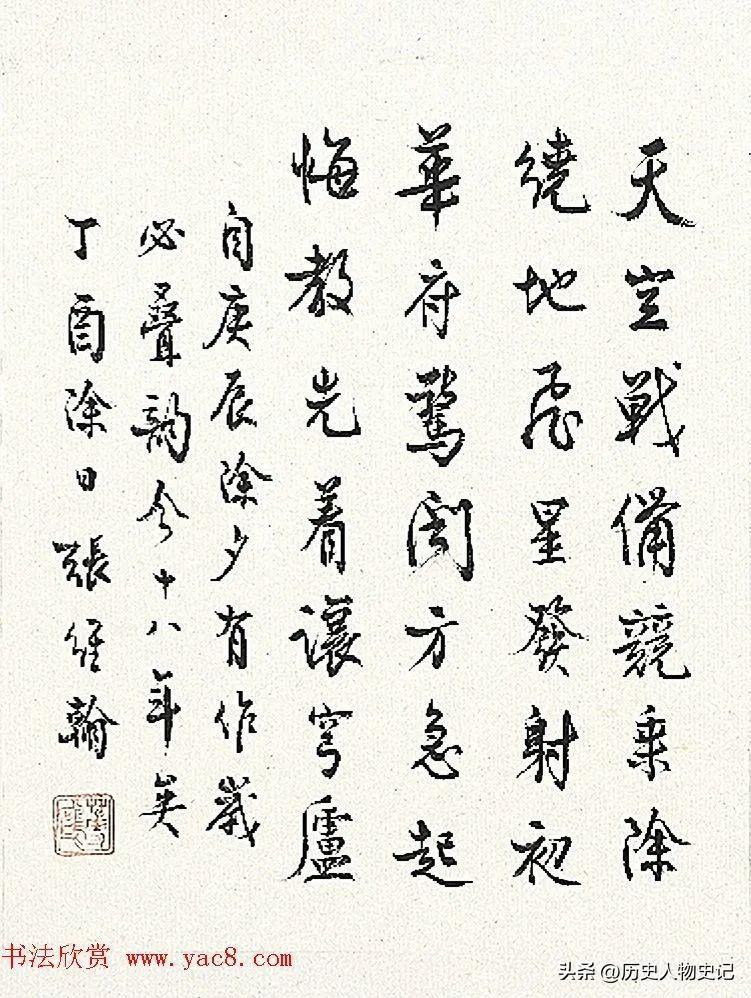 天空戰備競乘除
繞地飛星發射初
華府驚聞方急起
悔教先着讓穹廬
自庚辰除夕有作歲
必疊韵今十八年矣
丁酉除日張維翰
书法欣赏 www.yac8.com
头条 @历史人物史记